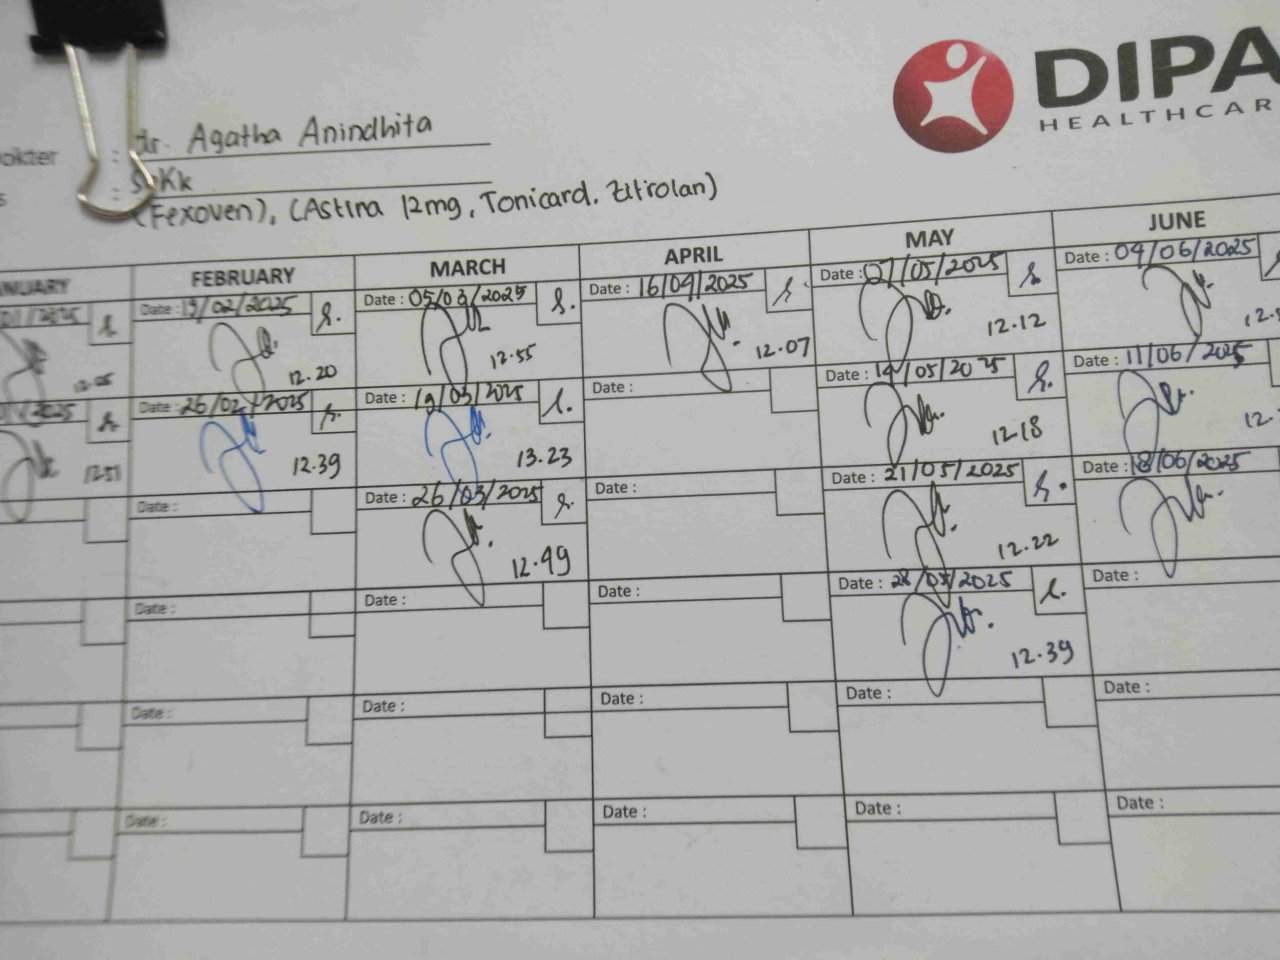 DIPA
HEALTHCAR
okter : dr. Agatha Anindhita
s : SpKK
(Fexoven), (Astina 12mg, Tonicard, Zitrolan)
NUARY FEBRUARY MARCH APRIL MAY JUNE
/2025 Date : 19/02/2025 Date : 05/03/2025 Date : 16/04/2025 Date : 07/05/2025 Date : 04/06/2025
12.20 12.55 12.07 12.12 12.
/2025 Date : 26/02/2025 Date : 19/03/2025 Date : Date : 14/05/2025 Date : 11/06/2025
12.51 12.39 13.23 12.18 12.
Date : Date : 26/03/2025 Date : Date : 21/05/2025 Date : 18/06/2025
12.49 12.22
Date : Date : Date : Date : 28/05/2025 Date :
12.39
Date : Date : Date : Date : Date :
Date : Date : Date : Date : Date :